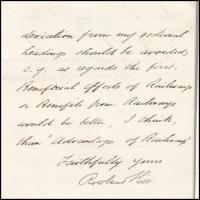 deviation from my sectional
headings should be avoided;
e.g. as regards the first.
Beneficial Effects of Railways
or Benefits from Railways
would be better, I think,
than "Advantage of Railways"
Faithfully yours
Rowland Hill